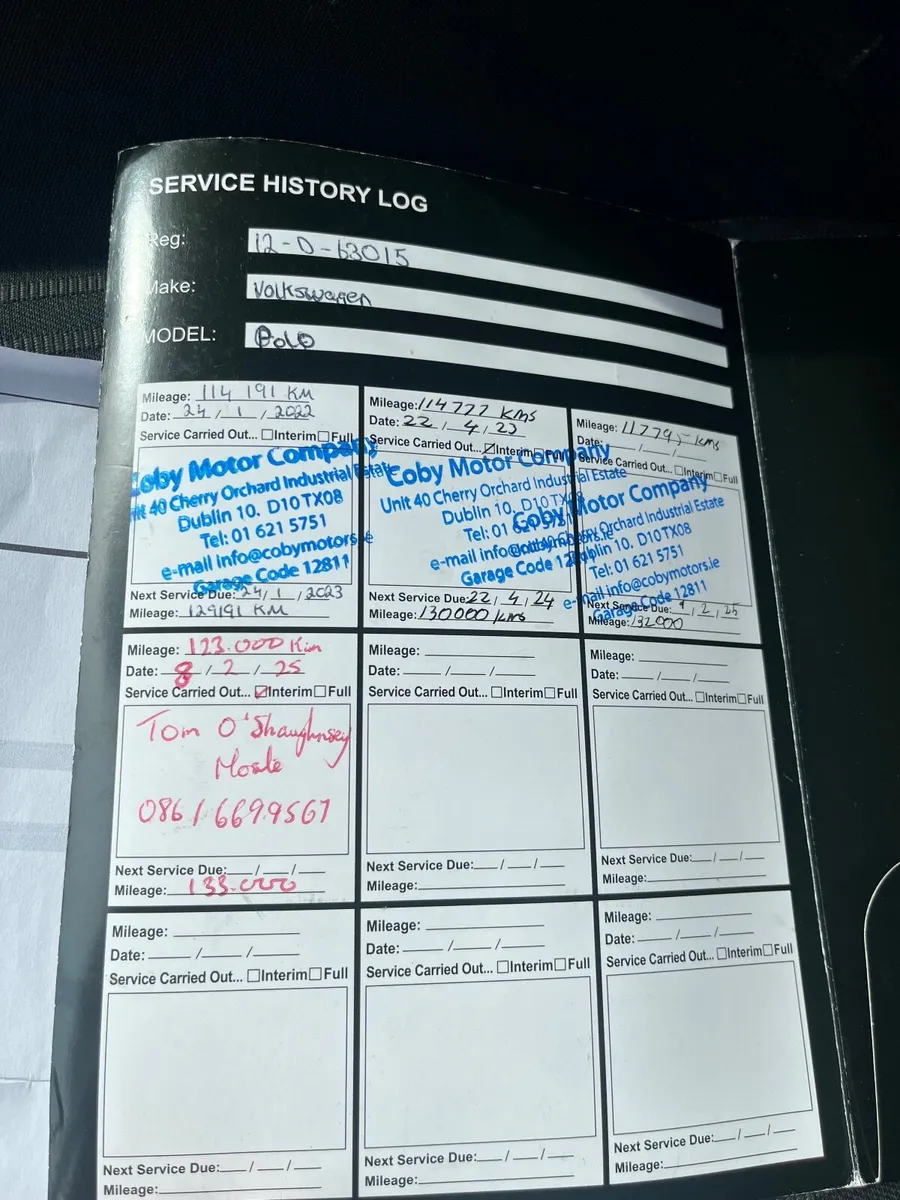 SERVICE HISTORY LOG
Reg: 12-D-63015
Make: Volkswagen
MODEL: Polo
Mileage: 114 191 KM
Date: 24 / 1 / 2022
Service Carried Out... ☐Interim☐Full
Coby Motor Company
Unit 40 Cherry Orchard Industrial Estate
Dublin 10. D10 TX08
Tel: 01 621 5751
e-mail info@cobymotors.ie
Garage Code 12811
Next Service Due: 24 / 1 / 2023
Mileage: 129191 KM
Mileage: 114777 kms
Date: 22 / 4 / 23
Service Carried Out... ☑Interim☐Full
Coby Motor Company
Unit 40 Cherry Orchard Industrial Estate
Dublin 10. D10 TX08
Tel: 01 621 5751
e-mail info@cobymotors.ie
Garage Code 12811
Next Service Due: 22 / 4 / 24
Mileage: 130000 kms
Mileage: kms
Date:
Service Carried Out... ☐Interim☐Full
Coby Motor Company
Unit 40 Cherry Orchard Industrial Estate
Dublin 10. D10 TX08
Tel: 01 621 5751
e-mail info@cobymotors.ie
Garage Code 12811
Next Service Due: 9 / 2 / 25
Mileage: 132000
Mileage: 123.000 Km
Date: 8 / 2 / 25
Service Carried Out... ☑Interim☐Full
Tom O'Shaughnsey
086 / 6699567
Next Service Due: / /
Mileage: 133.000
Mileage:
Date: / /
Service Carried Out... ☐Interim☐Full
Next Service Due: / /
Mileage:
Mileage:
Date: / /
Service Carried Out... ☐Interim☐Full
Next Service Due: / /
Mileage:
Mileage:
Date: / /
Service Carried Out... ☐Interim☐Full
Next Service Due: / /
Mileage:
Mileage:
Date: / /
Service Carried Out... ☐Interim☐Full
Next Service Due: / /
Mileage:
Mileage:
Date: / /
Service Carried Out... ☐Interim☐Full
Next Service Due: / /
Mileage: